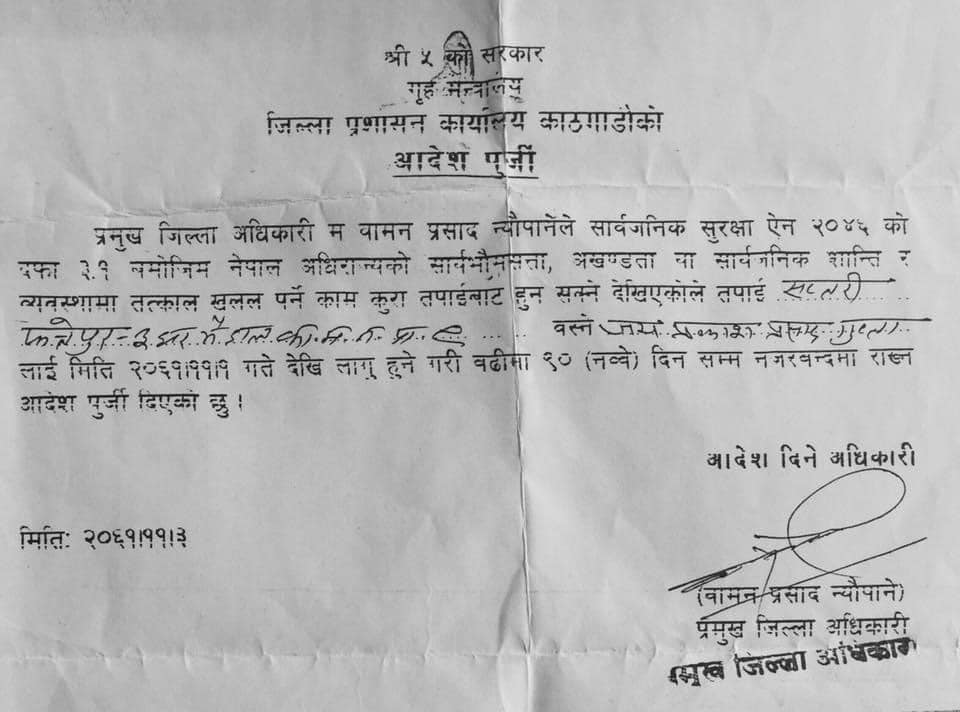 श्री ५ को सरकार
गृह मन्त्रालय
जिल्ला प्रशासन कार्यालय काठमाडौंको
आदेश पुर्जी
प्रमुख जिल्ला अधिकारी म वामन प्रसाद न्यौपानेले सार्वजनिक सुरक्षा ऐन २०४६ को
दफा ३.१ बमोजिम नेपाल अधिराज्यको सार्वभौमसत्ता, अखण्डता वा सार्वजनिक शान्ति र
व्यवस्थामा तत्काल खलल पर्ने काम कुरा तपाईबाट हुन सक्ने देखिएकोले तपाई सप्तरी
वस्ने जय प्रकाश प्रसाद गुप्ता
लाई मिति २०६१।११।१ गते देखि लागु हुने गरी वढीमा ९० (नव्वे) दिन सम्म नजरवन्दमा राख्न
आदेश पुर्जी दिएको छु।
आदेश दिने अधिकारी
मिति: २०६१।११।३
(वामन प्रसाद न्यौपाने)
प्रमुख जिल्ला अधिकारी
प्रमुख जिल्ला अधिकारी